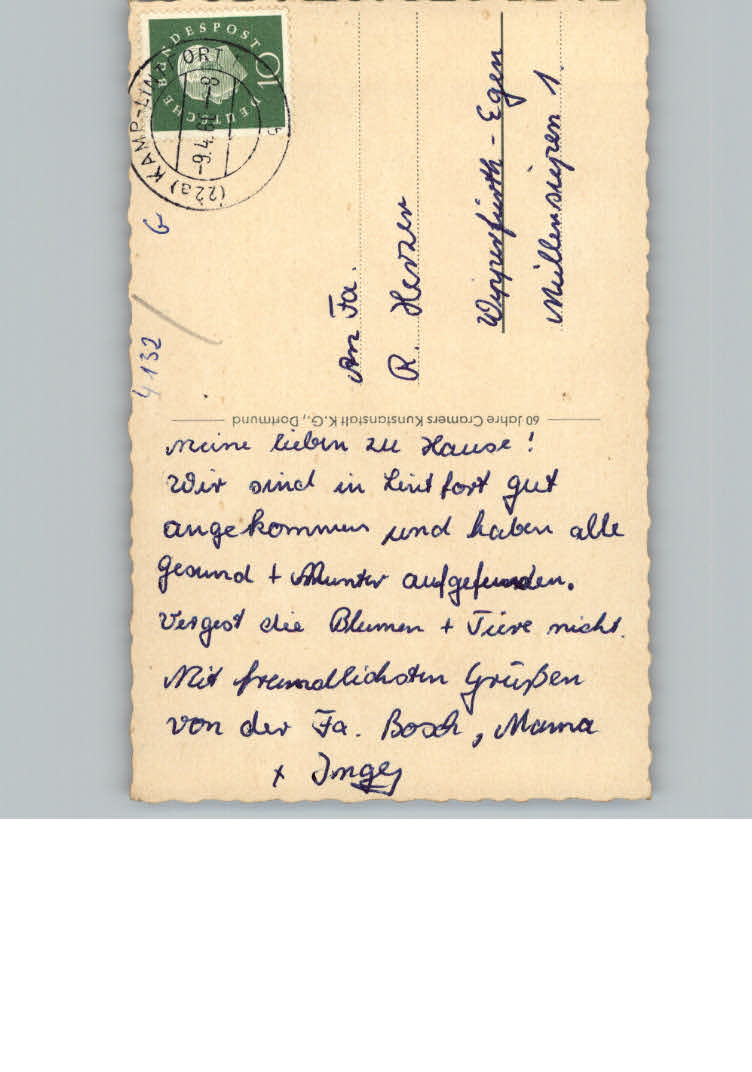 DEUTSCHE BUNDESPOST
10
(22a) KAMP-LINTFORT
-9.4.60-8
b
4132
An Fa.
R. Herzer
Wipperfürth - Egen
Müllensiepen 1.
60 Jahre Cramers Kunstanstalt K.G., Dortmund
Meine lieben zu Hause!
Wir sind in Lintfort gut
angekommen und haben alle
gesund + Munter aufgefunden.
Vergest die Blumen + Tiere nicht.
Mit freundlichsten Grüßen
von der Fa. Bosch, Mama
+ Inge